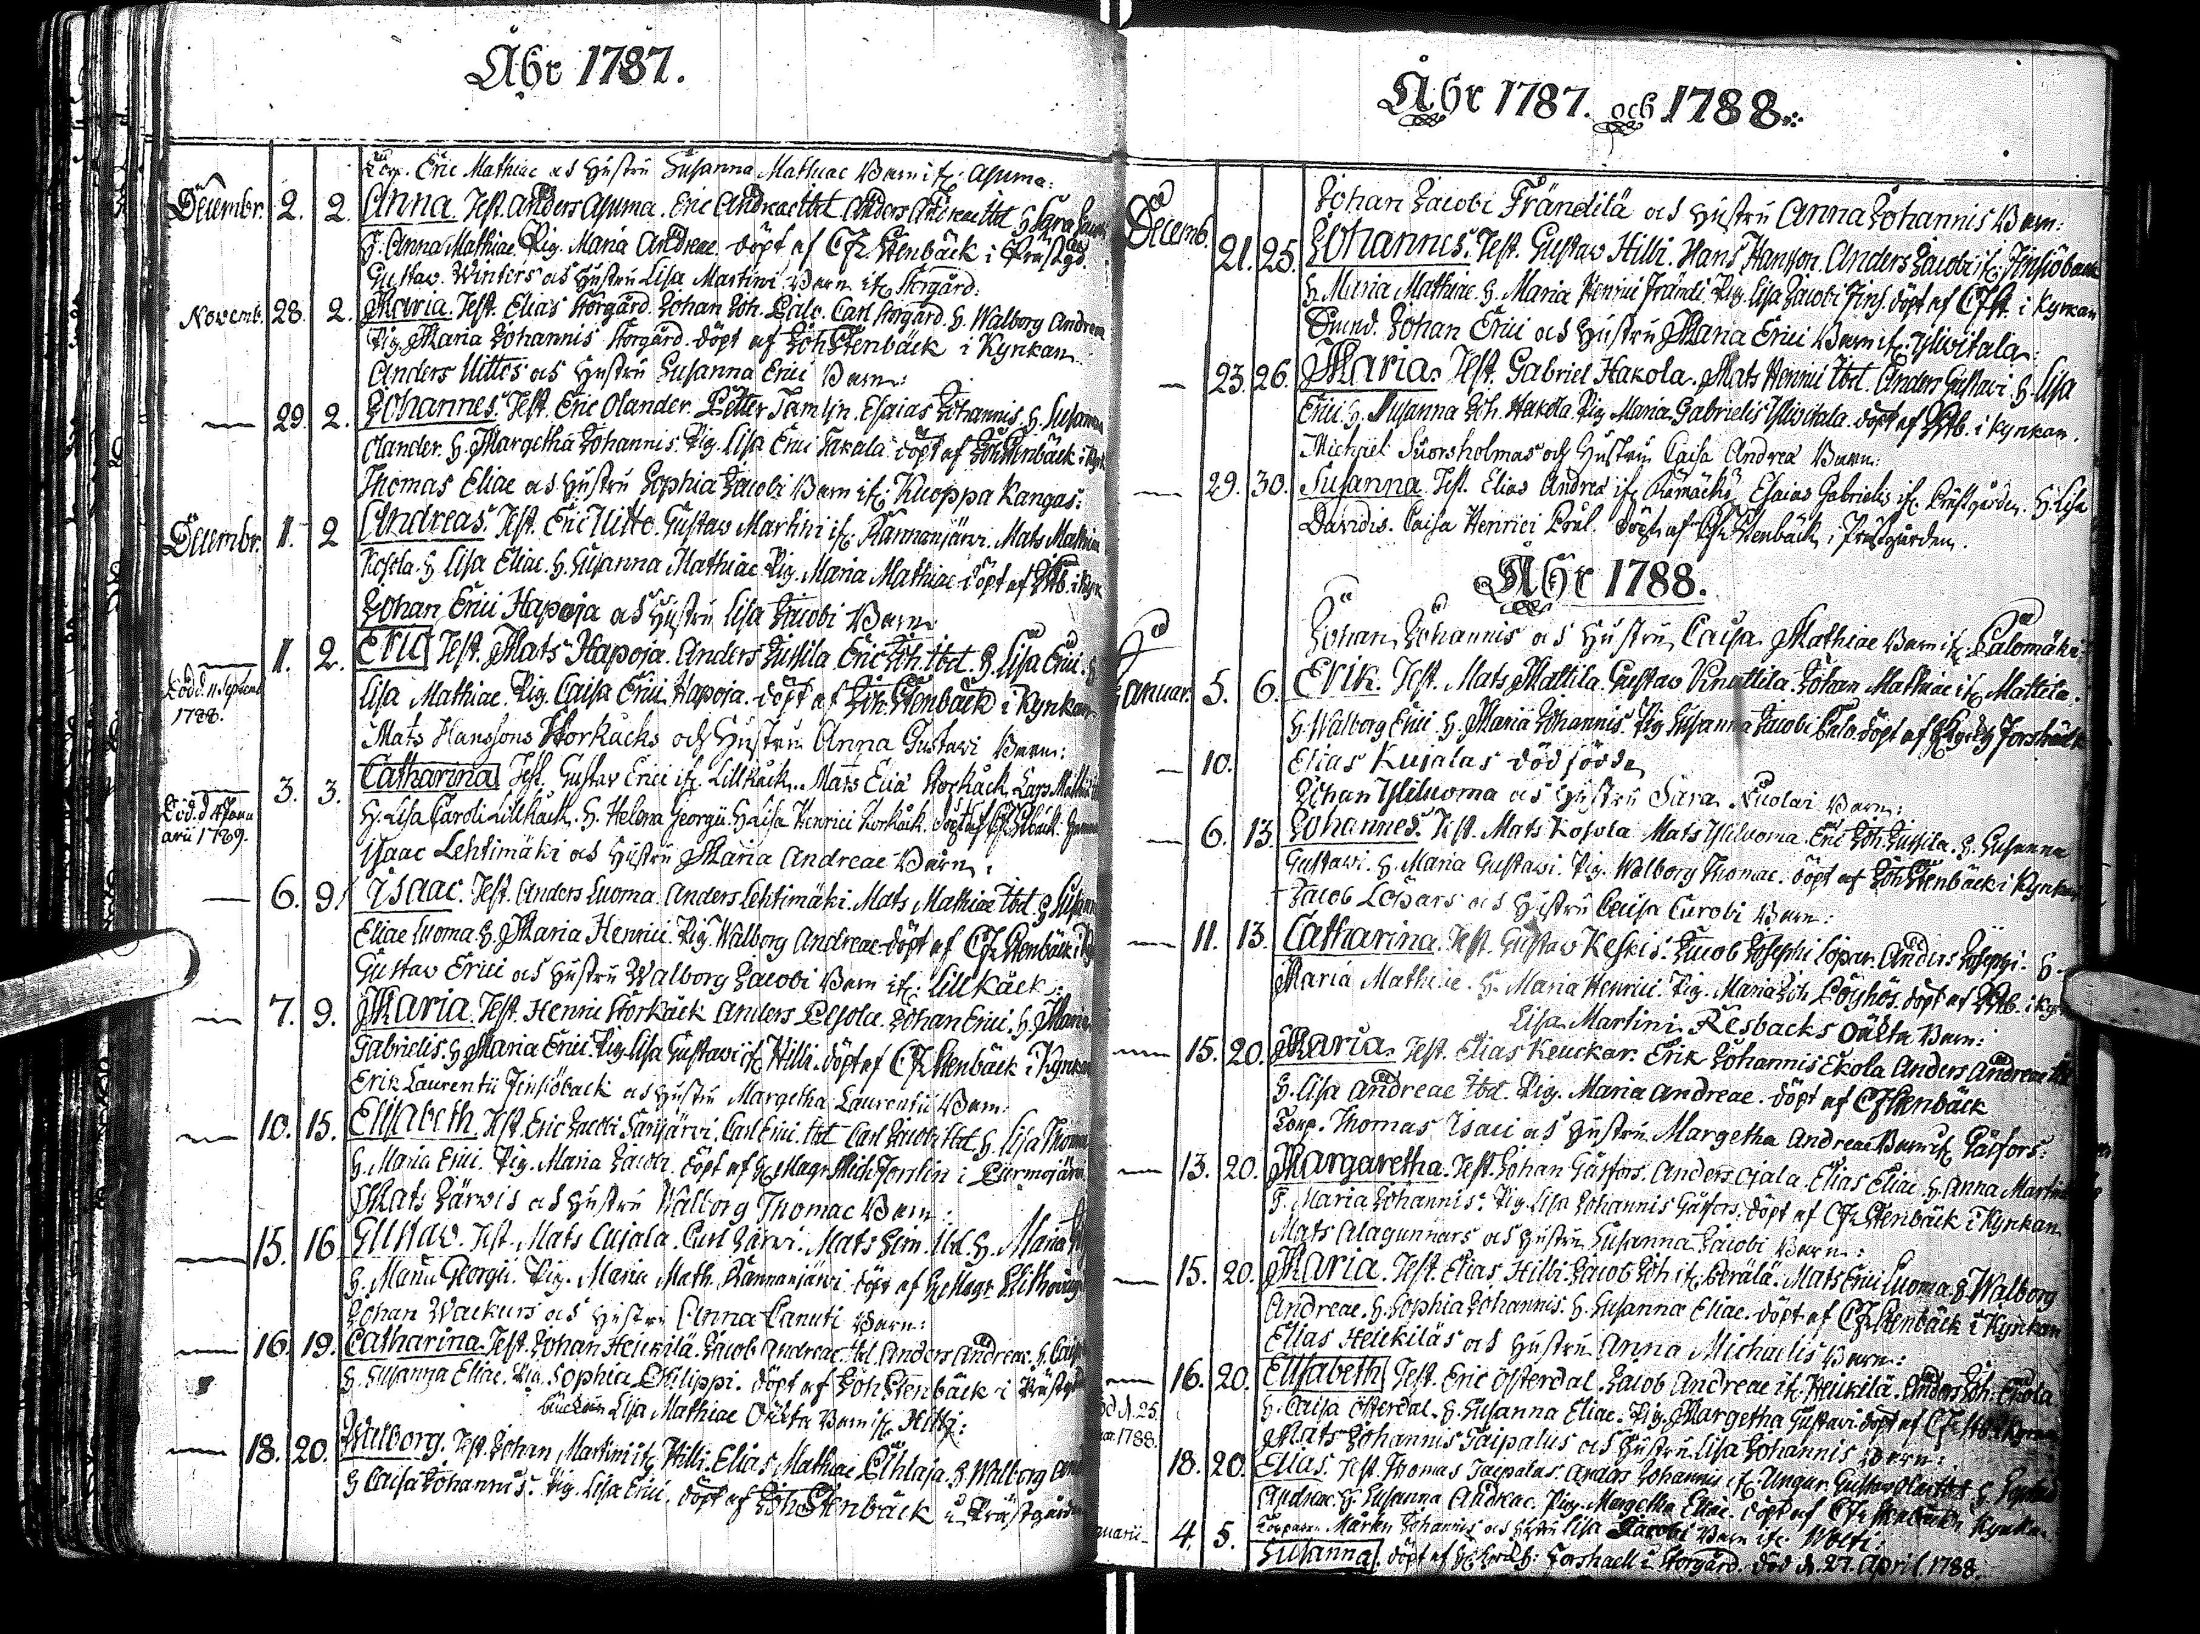 Åhr 1787.
Corp. Eric Mathiae och Hustru Susanna Mathiae Barn ifr. Asuma:
Decembr. 2. 2. Anna. Test. Anders Asuma. Eric Andreae ibd. Anders Andreae ibd. H.
F. Anna Mathiae. Pig. Maria Andreae. döpt af Stenbäck i Prästgd.
Gustav Winters och Hustru Lisa Martini Barn ifr. Storgård:
Novemb. 28. 2. Maria. Test. Elias Storgård. Johan Joh. Palo. Carl Storgård. H. Walborg Andreae
Pig. Maria Johannis Storgård. döpt af Joh Stenbäck i Kyrkan.
Anders Uittos och Hustru Susanna Erici Barn:
29. 2. Johannes. Test. Eric Olander. Petter Tamlin. Esaias Johannis. H. Susanna
Olander. H. Margetha Johannis. Pig. Lisa Erici Takala. döpt af Joh Stenbäck i
Thomas Eliae och Hustru Sophia Jacobi Barn ifr. Kuoppa Kangas:
Decembr. 1. 2 Andreas. Test. Eric Uitto. Gustaw Martini ifr. Kannanjärvi. Mats Mathiae
Kosola. H. Lisa Eliae. H. Susanna Mathiae. Pig. Maria Mathiae. döpt af Stb. i Kyrk
Johan Erici Hapoja och Hustru Lisa Jacobi Barn
1. 2. Eric Test. Mats Hapoja. Anders Jussila. Eric Joh. ibd. H. Lisa Erici. H
Död d. 11 Septemb 1788.
Lisa Mathiae. Pig. Caisa Erici Hapoja. döpt af Joh. Stenbäck i Kyrkan
Mats Hanssons Storkacks och Hustru Anna Gustavi Barn:
3. 3. Catharina Test. Gustav Erici ifr. Lillkack. Mats Eliae Storkack. Lars
Död. d 4 Januarii 1789.
H. Lisa Caroli Lillkack. H. Helena Georgii. H Lisa Henrici Storkack. döpt af
Isaac Lehtimäki och Hustru Maria Andreae Barn:
6. 9. Isaac. Test. Anders Luoma. Anders Lehtimäki. Mats Mathiae ibd. H Susan
Eliae Luoma. H. Maria Henrici. Pig. Walborg Andreae. döpt af Stenbäck i
Gustav Erici och Hustru Walborg Jacobi Barn ifr. Lillkack:
7. 9. Maria. Test. Henric Storkack Anders Pesola. Johan Erici. H. Maria
Gabrielis. H Maria Erici. Pig. Lisa Gustavi ifr. Hilli. döpt af Stenbäck i Kyrkan
Erik Laurentii Finsjöback och Hustru Margetha Laurentii Barn:
10. 15. Elisabeth. Test. Eric Jacobi Sarijärvi. Carl Erici ibd Carl Jacobi ibd. H. Lisa Thomae
H. Maria Erici. Pig. Maria Jacobi. döpt af H. Magr. Mich Forslin i
Mats Järvis och Hustru Walborg Thomae Barn:
15. 16 Gustav. Test. Mats Cujala. Carl Järvi. Mats Sim. ibd. H. Maria
H. Maria Georgii. Pig. Maria Math. Kannanjärvi. döpt af H. Magr.
Johan Wackurs och Hustru Anna Canuti Barn:
16. 19. Catharina. Test. Johan Heickilä. Jacob Andreae. ibd. Anders Andreae. H. Caisa
H. Susanna Eliae. Pig. Sophia Philippi. döpt af Joh Stenbäck i Prästgd
Lisa Mathiae Oäkta Barn ifr. Hilli:
18. 20. Walborg. Test. Johan Martini ifr. Hilli. Elias Mathiae Pihlaja. H. Walborg
H Caisa Johannis. Pig. Lisa Erici. döpt af Joh Stenbäck i Prästgården
Åhr 1787. och 1788.
Johan Jacobi Frändilä och Hustru Anna Johannis Barn:
Decemb. 21. 25. Johannes. Test. Gustaw Hilli. Hans Hansson. Anders Jacobi ifr. Finsjöback
H Maria Mathiae. H. Maria Henrici Frändi. Pig. Lisa Jacobi Fins. döpt af i Kyrkan
Johan Erici och Hustru Maria Erici Barn ifr. Yliviitala:
23. 26. Maria. Test. Gabriel Hakola. Mats Henrici ibd. Anders Gustavi. H. Lisa
Erici. H. Susanna Joh. Hakola. Pig. Maria Gabrielis Yliviitala. döpt af Stb. i Kyrkan.
Michael Suorsholmas och Hustru Caisa Andreä Barn:
29. 30. Susanna. Test. Elias Andreä ifr. Rämäckö. Esaias Gabrielis ifr. Prästgården. H. Lisa
Davidis. Caisa Henrici Poul. döpt af Stenbäck i Prästgården.
Åhr 1788.
Johan Johannis och Hustru Caisa Mathiae Barn ifr. Palomäki
Januar. 5. 6. Erik. Test. Mats Mattila. Gustav Mattila. Johan Mathiae ifr. Mattila.
H. Walborg Erici. H. Maria Johannis. Pig Susanna Jacobi Palo. döpt af Forsbäck
10. Elias Kujalas dödfödde
Johan Yliluoma och Hustru Sara Nicolai Barn:
6. 13. Johannes. Test. Mats Kosola Mats Yliluoma. Eric Joh. Jussila. H. Susanna
Gustavi. H. Maria Gustavi. Pig. Walborg Thomae. döpt af Joh Stenbäck i Kyrkan
Jacob Lopars och Hustru Caisa Barn:
11. 13. Catharina. Test. Gustav Keskis. Jacob Josephi Lopar. Anders Josephi. H.
Maria Mathiae. H. Maria Henrici. Pig. Maria Joh Löyhös. döpt af Stb. i Kyrk
Lisa Martini Kesbacks Oäkta Barn:
15. 20. Maria. Test. Elias Keuckar. Erik Johannis Ekola Anders Andreae ibd
H. Lisa Andreae ibd. Pig. Maria Andreae. döpt af Stenbäck
Corp. Thomas Isaci och Hustru Margetha Andreae Barn ifr. Gäsfors:
13. 20. Margaretha. Test. Johan Gäsfors. Anders Ojala. Elias Eliae. H. Anna Martini
F. Maria Johannis. Pig. Lisa Johannis Gäsfors. döpt af Stenbäck i Kyrkan.
Mats Alagunnars och Hustru Susanna Jacobi Barn:
15. 20. Maria. Test. Elias Hilli. Jacob Joh ifr. Perälä. Mats Erici Luoma. H Walborg
Andreae. H. Sophia Johannis. H. Susanna Eliae. döpt af Stenbäck i Kyrkan
Elias Heickiläs och Hustru Anna Michaelis Barn:
16. 20. Elisabeth Test. Eric Österdal. Jacob Andreae ifr. Heickilä. Anders Joh. Ekola
H. Caisa Österdal. H. Susanna Eliae. Pig. Margetha Gustavi. döpt af
d. 25. 1788.
Mats Johannis Taipalus och Hustru Lisa Johannis Barn:
18. 20. Elias. Test. Thomas Taipalus. Anders Johannis ifr. Ungar. Gustav ibd. H. Sophia
Andreae. H. Susanna Andreae. Pig. Margetha Eliae. döpt af Stenbäck i Kyrkan.
4. 5. Mårten Johannis och Hustru Lisa Jacobi Barn ifr. Wolti:
Susanna. döpt af i Storgård. död d. 27. April. 1788.